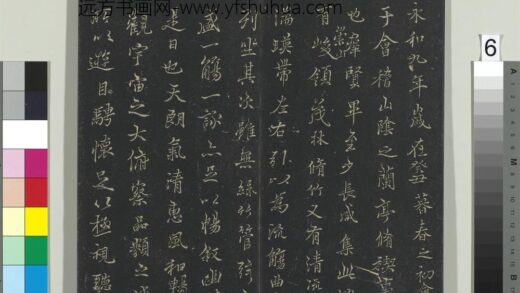 远方书画网-www.yfshuhua.com
永和九年歲在癸丑暮春之初會
于會稽山陰之蘭亭脩禊
也群賢畢至少長咸集此
崇山
有峻領茂林脩竹又有清流
湍暎帶左右引以為流觴曲
列坐其次雖無絲竹管弦
盛一觴一詠亦足以暢叙幽
是日也天朗氣清惠風和暢
觀宇宙之大俯察品類之
所以遊目騁懷足以極視聽
6